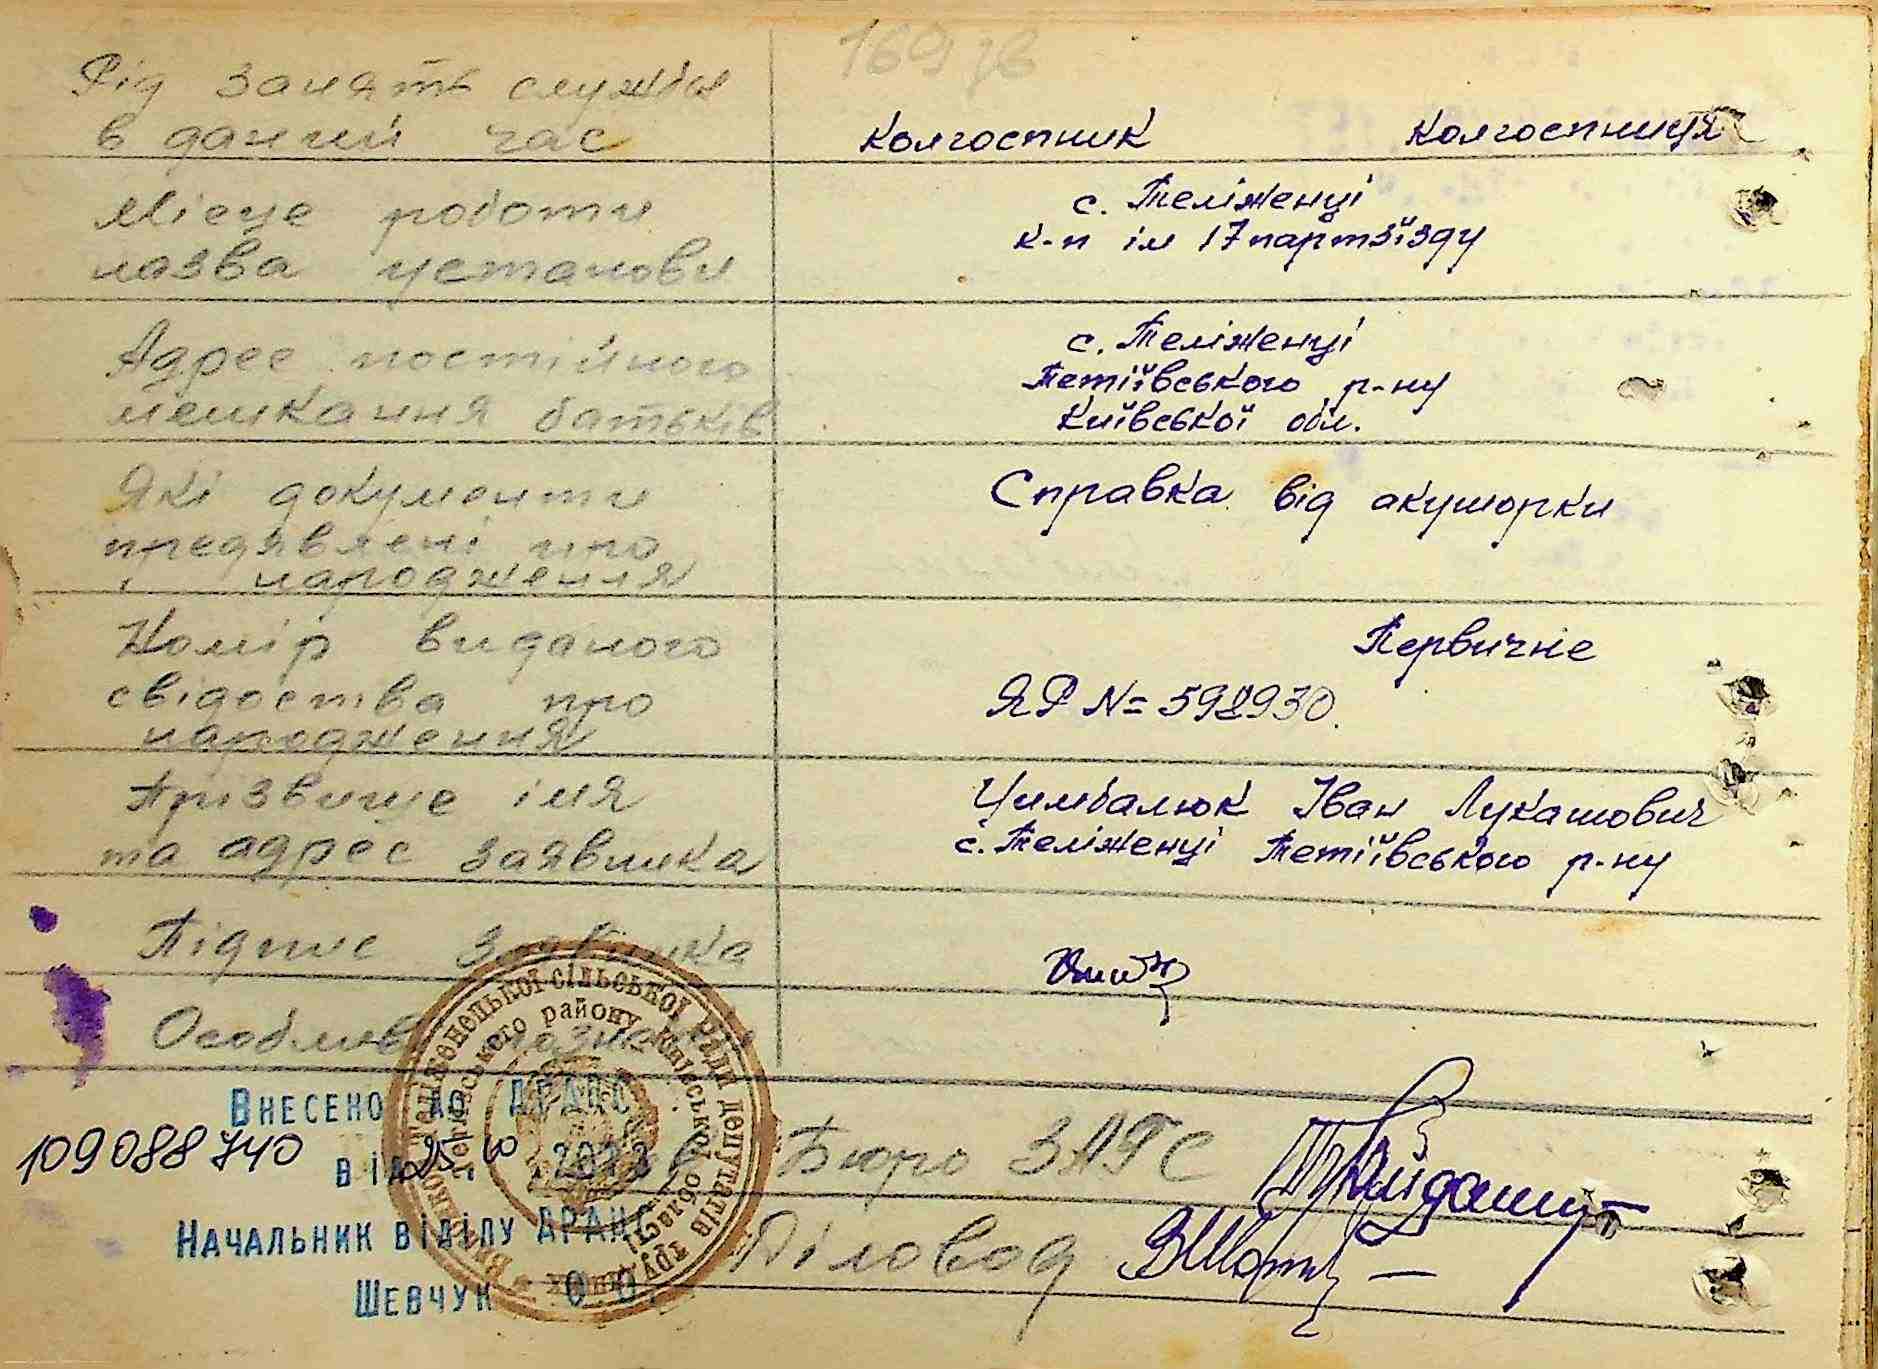 169 зв
Рід занять служби
в даний час
колгоспник колгоспниця
Місце роботи
назва установи
с. Теліженці
к-п ім 17 партзїзду
Адрес постійного
мешкання батьків
с. Теліженці
Тетіївського р-ну
Київської обл.
Які документи
предявлені про
народження
Справка від акушорки
Номір виданого
свідоства про
народження
Первичне
ЯР N= 598930.
Прізвище імя
та адрес заявника
Цимбалюк Іван Лукашович
с. Теліженці Тетіївського р-ну
Підпис заявника
Особливі
Внесено до ДРАЦС
109088740 від 25.10.2023
Начальник відділу ДРАЦС
Шевчук О О
сільської ради депутатів трудящих
Тетіївського району Київської області
Бюро ЗАГС
Діловод